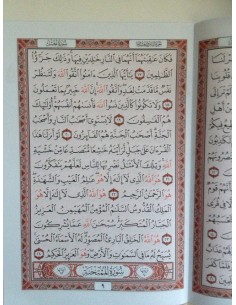 فَكَانَ عَٰقِبَتَهُمَآ أَنَّهُمَا فِى ٱلنَّارِ خَٰلِدَيْنِ فِيهَا وَذَٰلِكَ جَزَٰٓؤُا۟
ٱلظَّٰلِمِينَ ١٧ يَٰٓأَيُّهَا ٱلَّذِينَ ءَامَنُوا۟ ٱتَّقُوا۟ ٱللَّهَ وَلْتَنظُرْ
نَفْسٌ مَّا قَدَّمَتْ لِغَدٍ وَٱتَّقُوا۟ ٱللَّهَ إِنَّ ٱللَّهَ خَبِيرٌۢ بِمَا تَعْمَلُونَ
١٨ وَلَا تَكُونُوا۟ كَٱلَّذِينَ نَسُوا۟ ٱللَّهَ فَأَنسَىٰهُمْ أَنفُسَهُمْ أُو۟لَٰٓئِكَ
هُمُ ٱلْفَٰسِقُونَ ١٩ لَا يَسْتَوِىٓ أَصْحَٰبُ ٱلنَّارِ وَأَصْحَٰبُ
ٱلْجَنَّةِ أَصْحَٰبُ ٱلْجَنَّةِ هُمُ ٱلْفَآئِزُونَ ٢٠ لَوْ أَنزَلْنَا هَٰذَا
ٱلْقُرْءَانَ عَلَىٰ جَبَلٍ لَّرَأَيْتَهُۥ خَٰشِعًا مُّتَصَدِّعًا مِّنْ خَشْيَةِ
ٱللَّهِ وَتِلْكَ ٱلْأَمْثَٰلُ نَضْرِبُهَا لِلنَّاسِ لَعَلَّهُمْ يَتَفَكَّرُونَ
٢١ هُوَ ٱللَّهُ ٱلَّذِى لَآ إِلَٰهَ إِلَّا هُوَ عَٰلِمُ ٱلْغَيْبِ وَٱلشَّهَٰدَةِ
هُوَ ٱلرَّحْمَٰنُ ٱلرَّحِيمُ ٢٢ هُوَ ٱللَّهُ ٱلَّذِى لَآ إِلَٰهَ إِلَّا هُوَ
ٱلْمَلِكُ ٱلْقُدُّوسُ ٱلسَّلَٰمُ ٱلْمُؤْمِنُ ٱلْمُهَيْمِنُ ٱلْعَزِيزُ
ٱلْجَبَّارُ ٱلْمُتَكَبِّرُ سُبْحَٰنَ ٱللَّهِ عَمَّا يُشْرِكُونَ ٢٣
هُوَ ٱللَّهُ ٱلْخَٰلِقُ ٱلْبَارِئُ ٱلْمُصَوِّرُ لَهُ ٱلْأَسْمَآءُ ٱلْحُسْنَىٰ
يُسَبِّحُ لَهُۥ مَا فِى ٱلسَّمَٰوَٰتِ وَٱلْأَرْضِ وَهُوَ ٱلْعَزِيزُ ٱلْحَكِيمُ ٢٤
سُورَةُ ٱلْمُمْتَحَنَةِ
٩